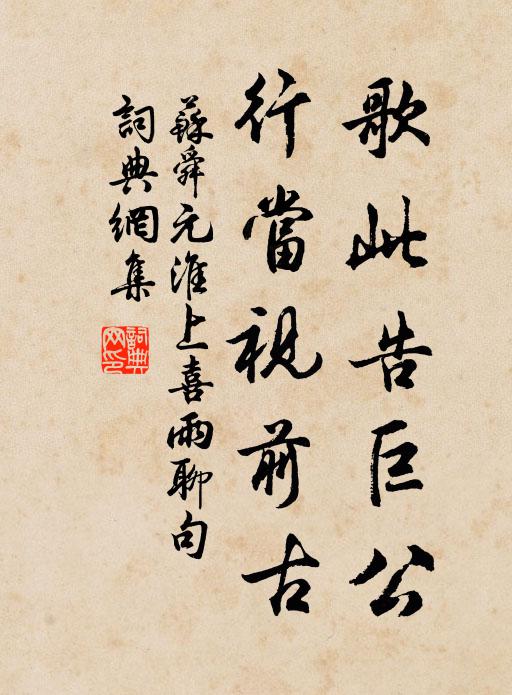 歌此告巨公
行當視前古
蘇舜元淮上喜雨聊句
詞典網集
詞典網印